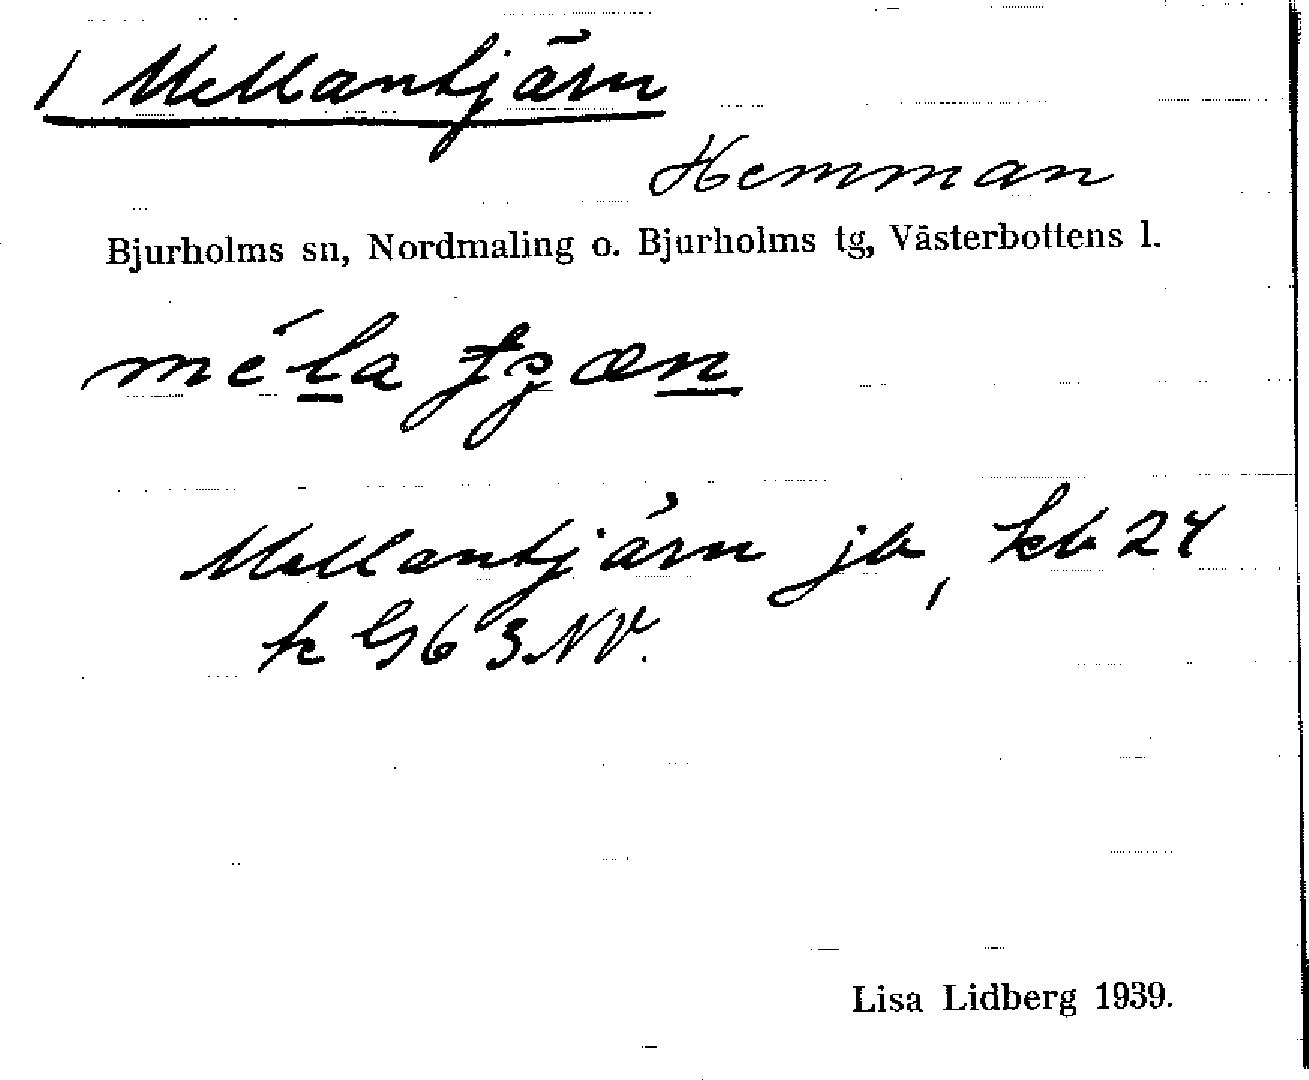 / Mellantjärn
Hemman
Bjurholms sn, Nordmaling o. Bjurholms tg, Västerbottens l.
méla
Mellantjärn jb, kb 24
k G6 3 NV.
Lisa Lidberg 1939.